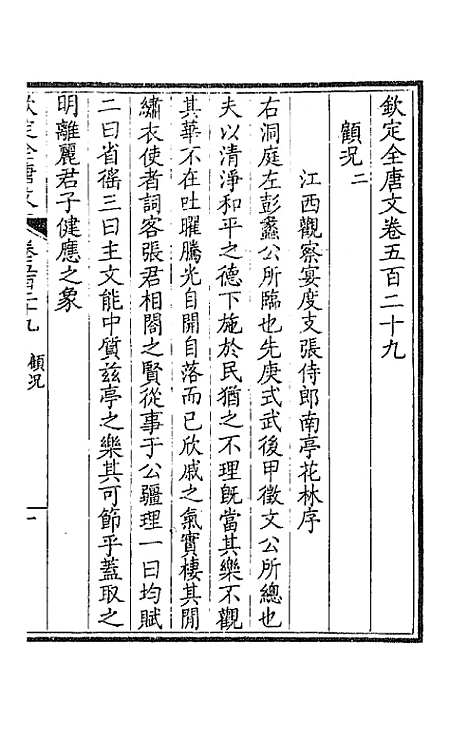 欽定全唐文卷五百二十九
顧況二
江西觀察宴度支張侍郎南亭花林序
右洞庭左彭蠡公所臨也先庚式武後甲徵文公所總也
夫以清淨和平之德下施於民猶之不理旣當其樂不觀
其華不在吐曜騰光自開自落而已欣戚之氣實棲其閒
繡衣使者詞客張君相閤之賢從事于公疆理一曰均賦
二曰省徭三曰主文能中質兹亭之樂其可節乎蓋取之
明離麗君子健應之象
欽定全唐文 卷五百二十九 顧況 一